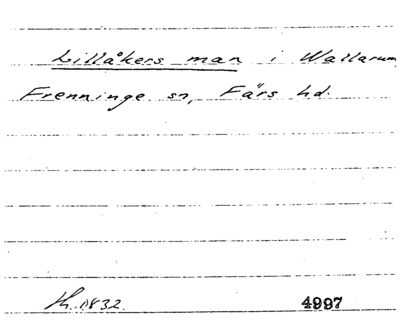 Lillåkers man i Wallarum,
Frenninge sn, Färs hd.
Th. 1832. 4997